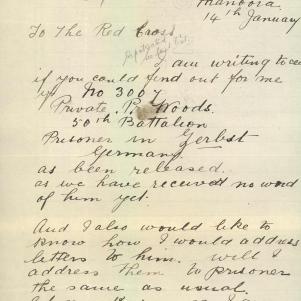 14th January
To The Red Cross
I am writing to
if you could find out for me
if No 3007
Private P. Woods.
50th Battalion
Prisoner in Gerbst
Germany
as been released.
as we have received no word
of him yet.
And I also would like to
know how I would address
letters to him. will I
address them to prisoner
the same as usual.